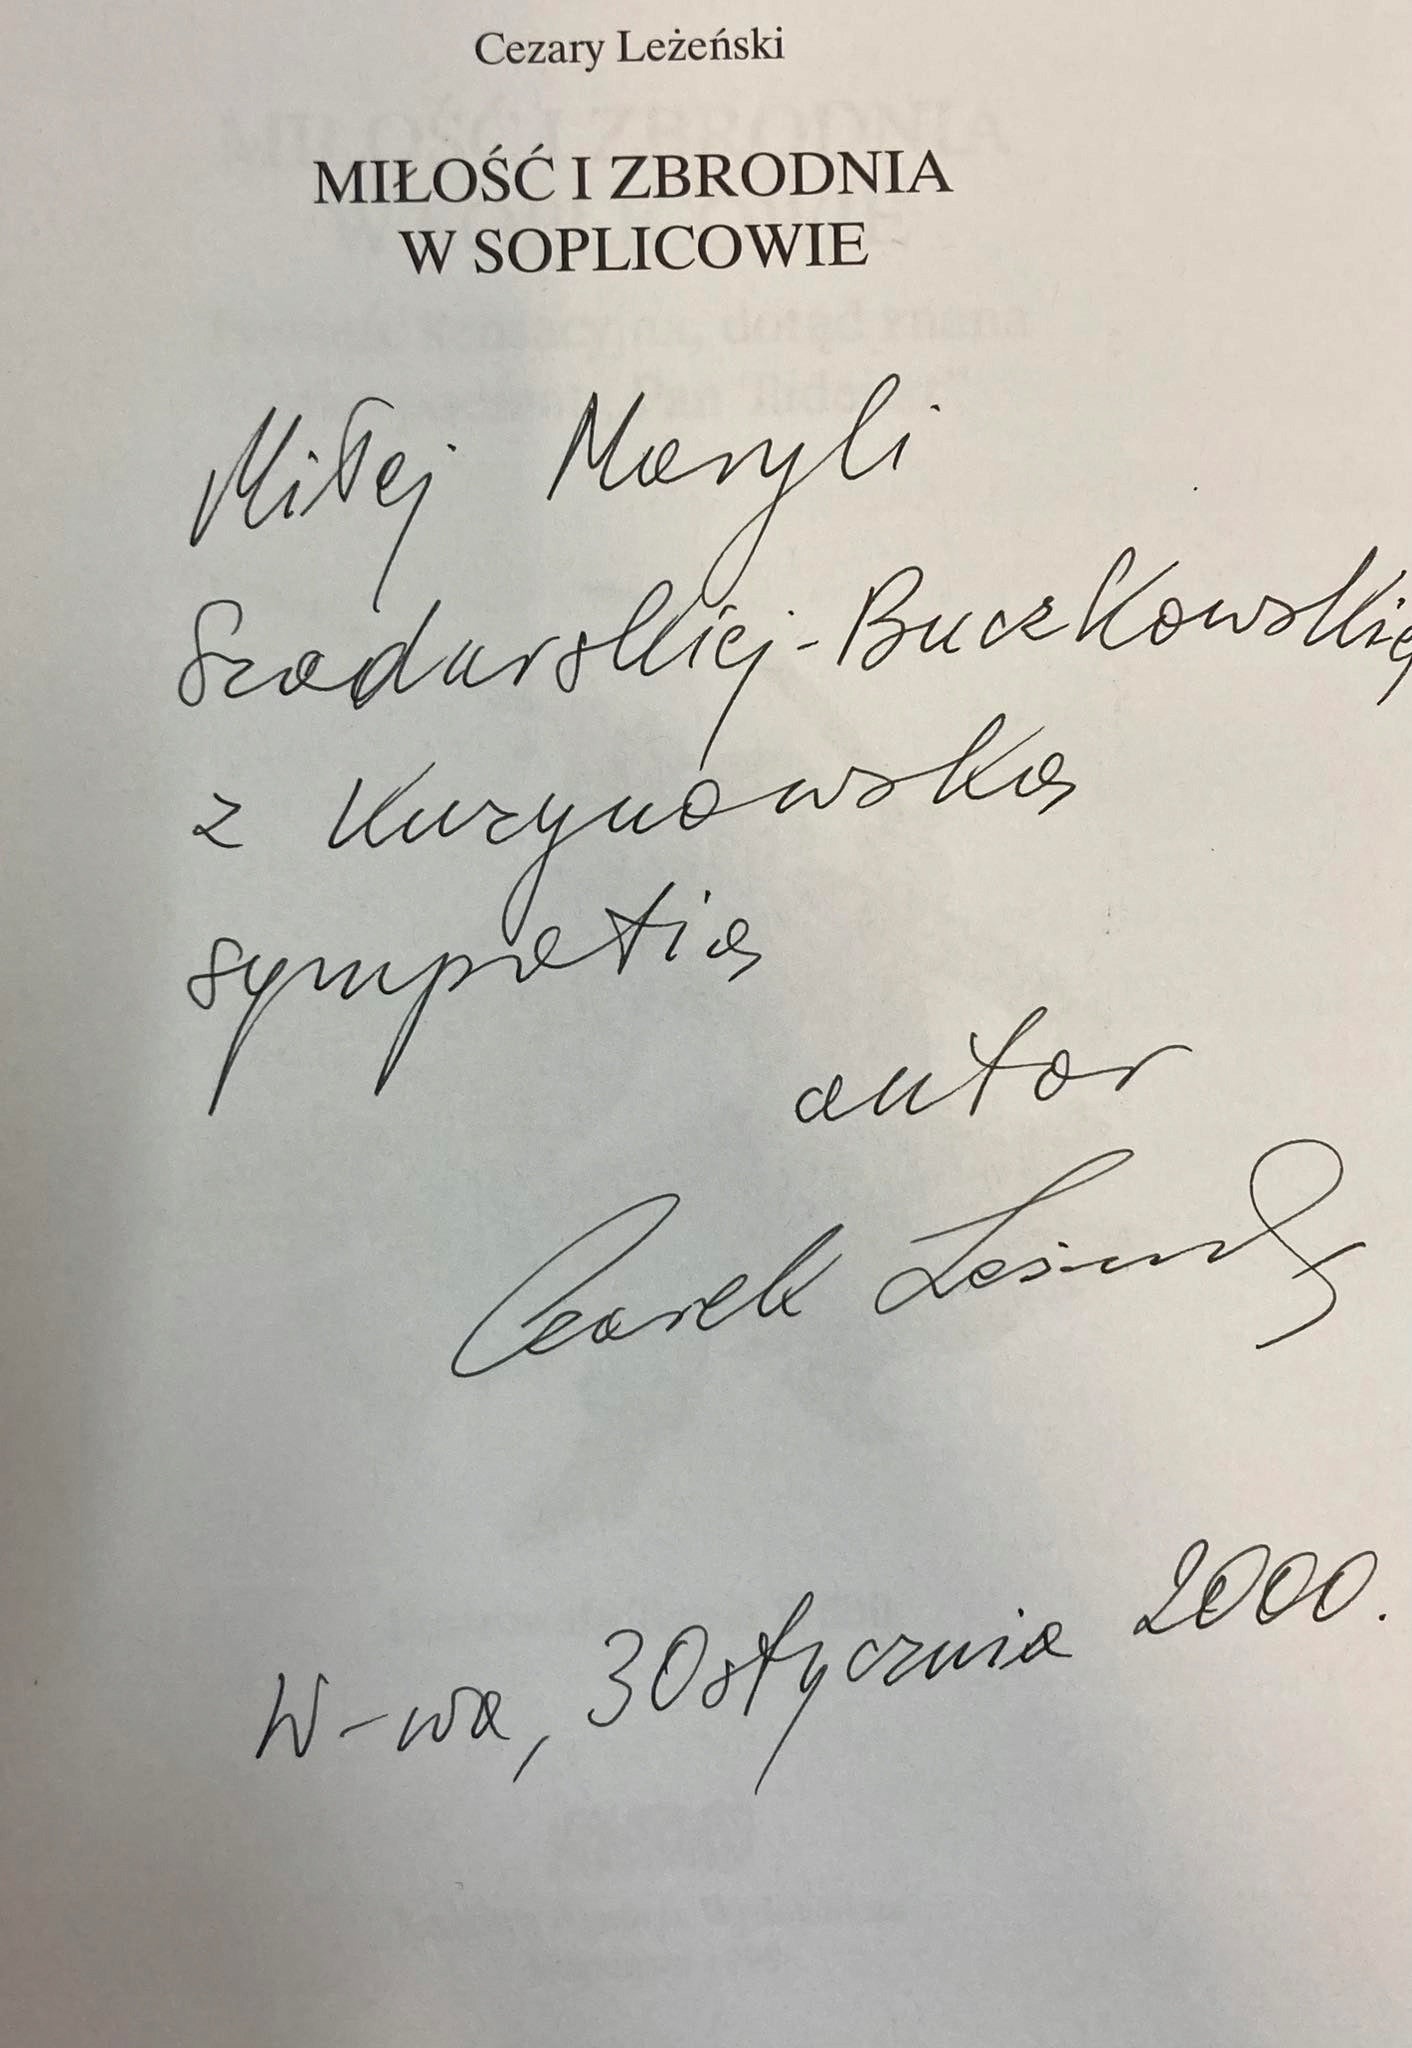 Cezary Leżeński
MIŁOŚĆ I ZBRODNIA
W SOPLICOWIE
Miłej Maryli
Szadurskiej-Buczkowskie
z kuzynowską
sympatią
autor
Czarek Leżeński
W-wa, 30 stycznia 2000.